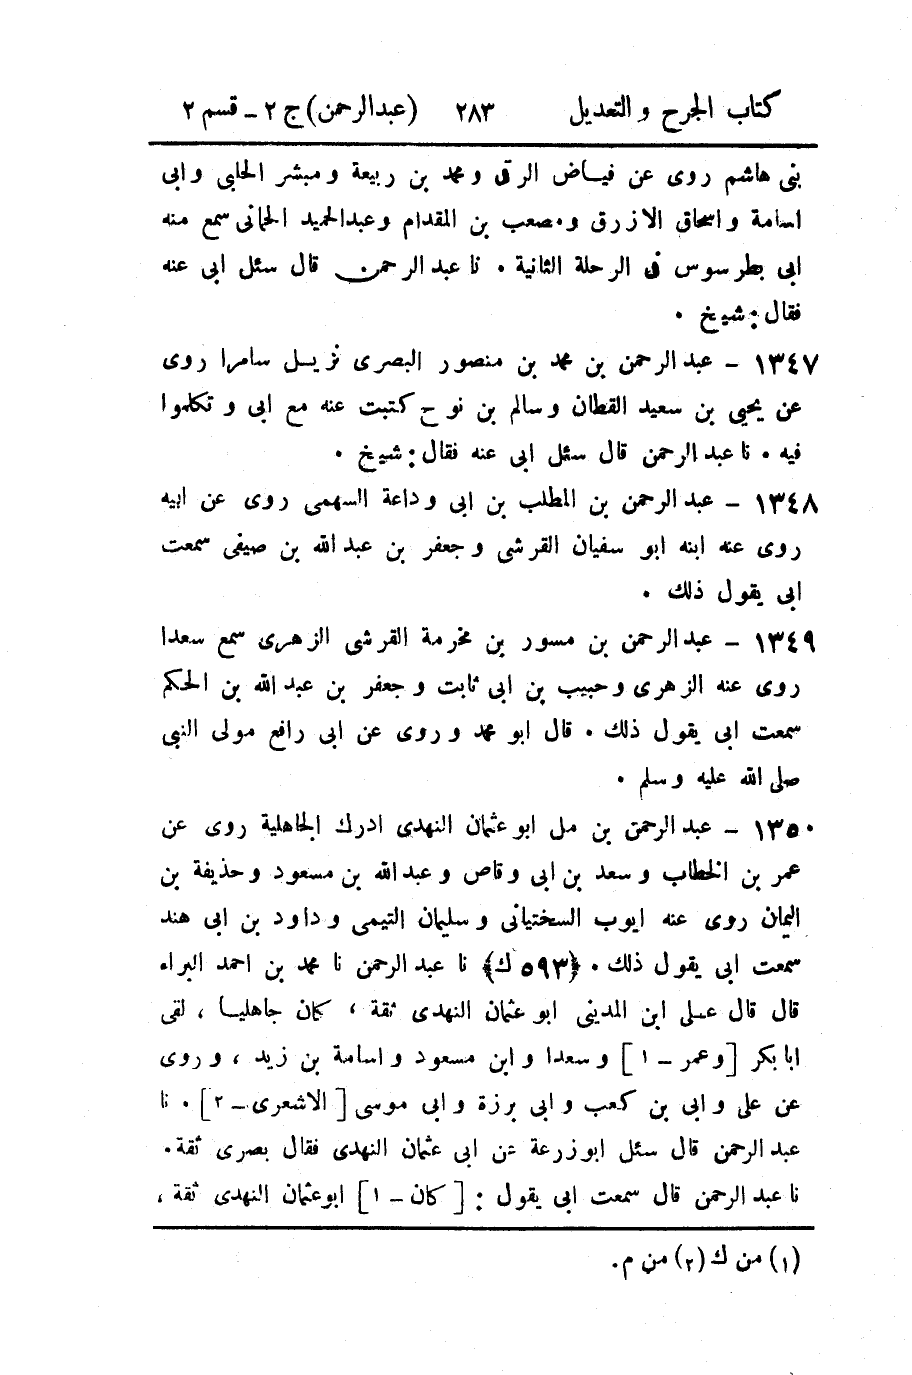 كتاب الجرح والتعديل ٢٨٣ (عبدالرحمن) ج ٢ ـ قسم ٢
بنى هاشم روى عن فياض الرقى ومحمد بن ربيعة ومبشر الحلبى وابى
اسامة واسحاق الازرق ومصعب بن المقدام وعبدالحميد الحمانى سمع منه
ابى بطرسوس فى الرحلة الثانية . نا عبد الرحمن قال سئل ابى عنه
فقال : شيخ .
١٣٤٧ ـ عبد الرحمن بن محمد بن منصور البصرى نزيل سامرا روى
عن يحيى بن سعيد القطان وسالم بن نوح كتبت عنه مع ابى وتكلموا
فيه . نا عبد الرحمن قال سئل ابى عنه فقال : شيخ .
١٣٤٨ ـ عبد الرحمن بن المطلب بن ابى وداعة السهمى روى عن ابيه
روى عنه ابنه ابو سفيان القرشى وجعفر بن عبد الله بن صيفى سمعت
ابى يقول ذلك .
١٣٤٩ ـ عبد الرحمن بن مسور بن مخرمة القرشى الزهرى سمع سعدا
روى عنه الزهرى وحبيب بن ابى ثابت وجعفر بن عبد الله بن الحكم
سمعت ابى يقول ذلك . قال ابو محمد وروى عن ابى رافع مولى النبى
صلى الله عليه وسلم .
١٣٥٠ ـ عبد الرحمن بن مل ابو عثمان النهدى ادرك الجاهلية روى عن
عمر بن الخطاب وسعد بن ابى وقاص وعبد الله بن مسعود وحذيفة بن
اليمان روى عنه ايوب السختيانى وسليمان التيمى وداود بن ابى هند
سمعت ابى يقول ذلك . ﴿٥٩٣ ك﴾ نا عبد الرحمن نا محمد بن احمد البراء
قال قال على ابن المدينى ابو عثمان النهدى ثقة ، كان جاهليا ، لقى
ابا بكر [وعمر ـ ١] وسعدا وابن مسعود واسامة بن زيد ، وروى
عن على وابى بن كعب وابى برزة وابى موسى [الاشعرى ـ ٢] . نا
عبد الرحمن قال سئل ابو زرعة عن ابى عثمان النهدى فقال بصرى ثقة .
نا عبد الرحمن قال سمعت ابى يقول : [كان ـ ١] ابو عثمان النهدى ثقة ،
(١) من ك (٢) من م .